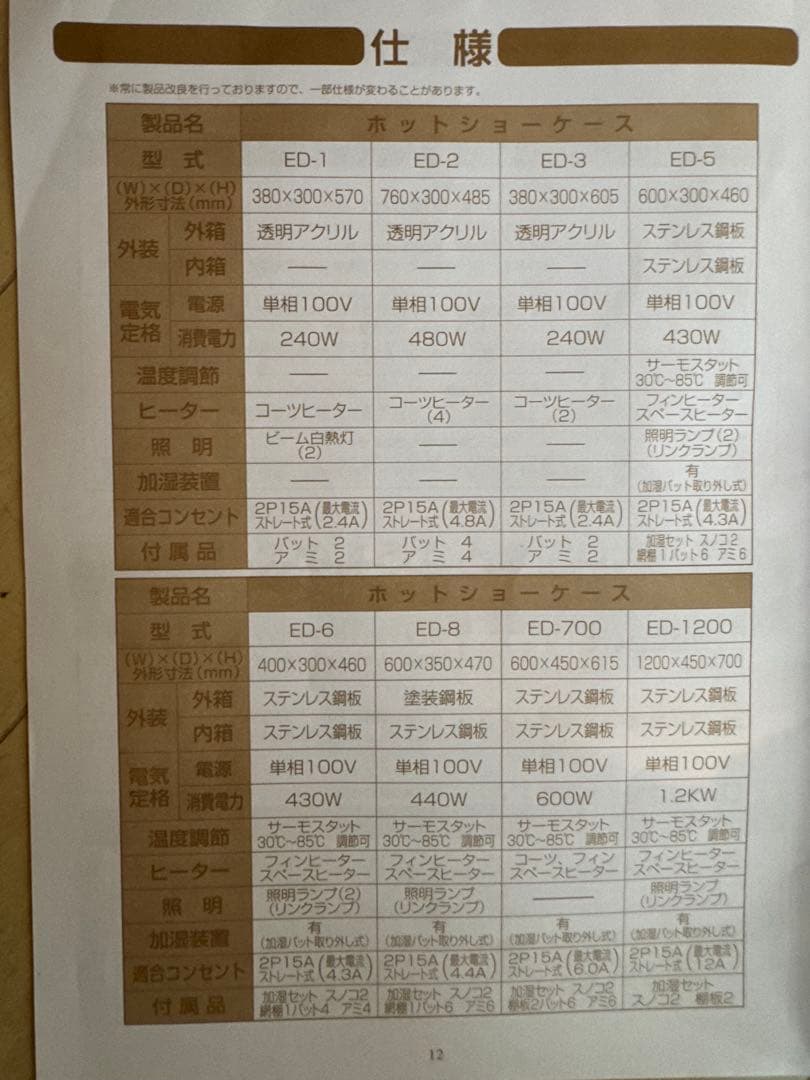 仕様
※常に製品改良を行っておりますので、一部仕様が変わることがあります。
製品名 ホットショーケース
型式 ED-1 ED-2 ED-3 ED-5
(W)×(D)×(H) 外形寸法(mm) 380×300×570 760×300×485 380×300×605 600×300×460
外装 外箱 透明アクリル 透明アクリル 透明アクリル ステンレス鋼板
内箱 ―― ―― ―― ステンレス鋼板
電気定格 電源 単相100V 単相100V 単相100V 単相100V
消費電力 240W 480W 240W 430W
温度調節 ―― ―― ―― サーモスタット 30℃~85℃ 調節可
ヒーター コーツヒーター コーツヒーター(4) コーツヒーター(2) フィンヒーター スペースヒーター
照明 ビーム白熱灯(2) ―― ―― 照明ランプ(2) (リンクランプ)
加湿装置 ―― ―― ―― 有 (加湿バット取り外し式)
適合コンセント 2P15A ストレート式(最大電流2.4A) 2P15A ストレート式(最大電流4.8A) 2P15A ストレート式(最大電流2.4A) 2P15A ストレート式(最大電流4.3A)
付属品 バット2 アミ2 バット4 アミ4 バット2 アミ2 加湿セット スノコ2 網棚1バット6 アミ6
製品名 ホットショーケース
型式 ED-6 ED-8 ED-700 ED-1200
(W)×(D)×(H) 外形寸法(mm) 400×300×460 600×350×470 600×450×615 1200×450×700
外装 外箱 ステンレス鋼板 塗装鋼板 ステンレス鋼板 ステンレス鋼板
内箱 ステンレス鋼板 ステンレス鋼板 ステンレス鋼板 ステンレス鋼板
電気定格 電源 単相100V 単相100V 単相100V 単相100V
消費電力 430W 440W 600W 1.2KW
温度調節 サーモスタット 30℃~85℃ 調節可 サーモスタット 30℃~85℃ 調節可 サーモスタット 30℃~85℃ 調節可 サーモスタット 30℃~85℃ 調節可
ヒーター フィンヒーター スペースヒーター フィンヒーター スペースヒーター コーツ、フィン スペースヒーター フィンヒーター スペースヒーター
照明 照明ランプ(2) (リンクランプ) 照明ランプ (リンクランプ) ―― 照明ランプ (リンクランプ)
加湿装置 有 (加湿バット取り外し式) 有 (加湿バット取り外し式) 有 (加湿バット取り外し式) 有 (加湿バット取り外し式)
適合コンセント 2P15A ストレート式(最大電流4.3A) 2P15A ストレート式(最大電流4.4A) 2P15A ストレート式(最大電流6.0A) 2P15A ストレート式(最大電流12A)
付属品 加湿セット スノコ2 網棚1バット4 アミ4 加湿セット スノコ2 網棚1バット6 アミ6 加湿セット スノコ2 棚板2バット6 アミ6 加湿セット スノコ2 棚板2
12